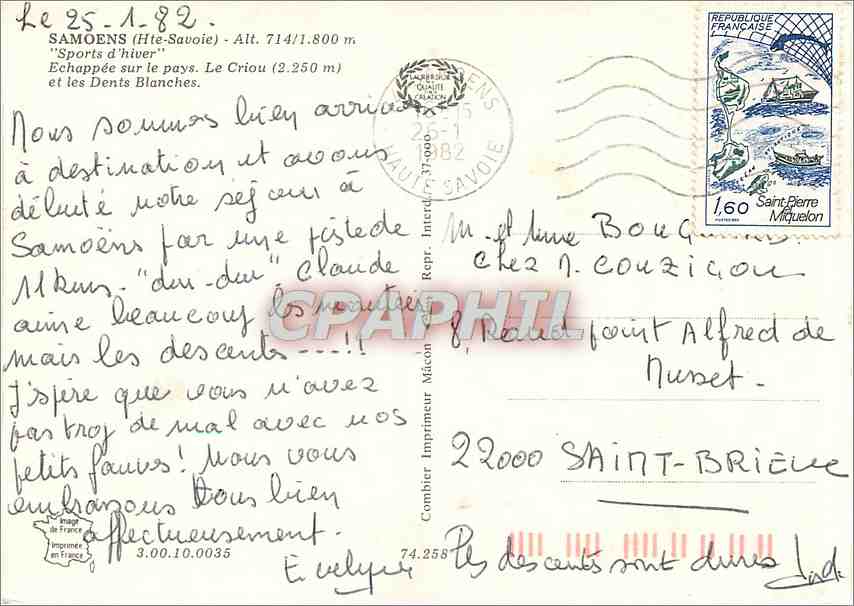 Le 25-1-82.
SAMOENS (Hte-Savoie) - Alt. 714/1.800 m
"Sports d'hiver"
Echappée sur le pays. Le Criou (2.250 m)
et les Dents Blanches.
Nous sommes bien arrivés
à destination et avons
débuté notre séjour à
Samoëns par une piste de
11 kms - "dur-dur". Claude
aime beaucoup les montées
mais les descentes ---!!
J'espère que vous n'avez
pas trop de mal avec nos
petits fauves! Nous vous
embrassons tous bien
affectueusement.
Evelyne
Image
de France
Imprimée
en France
3.00.10.0035
74.258
Combier Imprimeur Mâcon Repr. Interd. 37-000
LABEUR
QUALITE
CREATION
SAMOENS
15
25-1
1982
HAUTE SAVOIE
REPUBLIQUE
FRANÇAISE
1,60
Saint-Pierre
et Miquelon
CPAPHIL
M. et Mme
Chez M. COUZIGOU
8, Rond point Alfred de
Musset.
22000 SAINT-BRIEUC
Les descentes sont dures